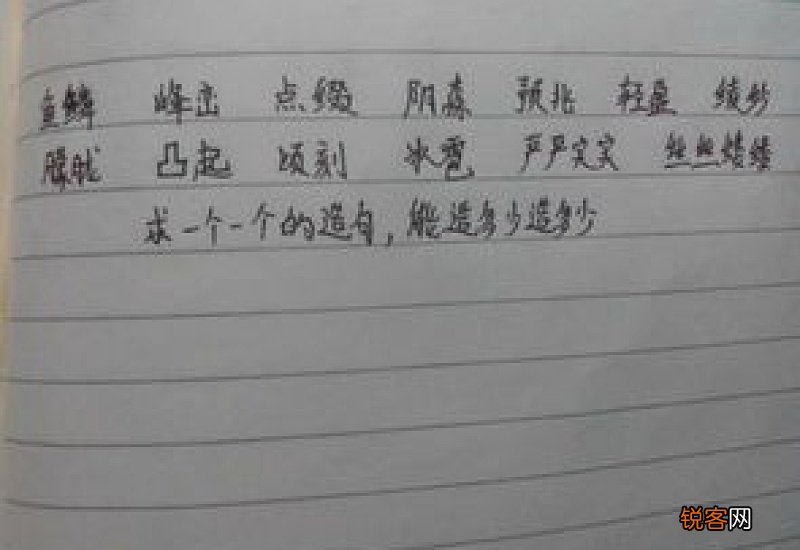 鱼鳞 峰峦 点缀 阴森 预兆 轻盈 绫纱
朦胧 凸起 顷刻 冰雹 严严实实 丝丝缕缕
求一个一个的造句,能造多少造多少
锐客网